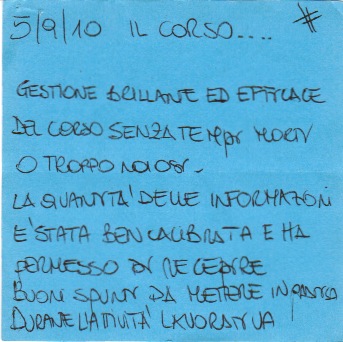 5/9/10 IL CORSO.... #
GESTIONE BRILLANTE ED EFFICACE
DEL CORSO SENZA TEMPI MORTI
O TROPPO NOIOSI.
LA QUANTITÀ DELLE INFORMAZIONI
E' STATA BEN CALIBRATA E HA
PERMESSO DI RECEPIRE
BUONI SPUNTI DA METTERE IN PRATICA
DURANTE L'ATTIVITÀ LAVORATIVA